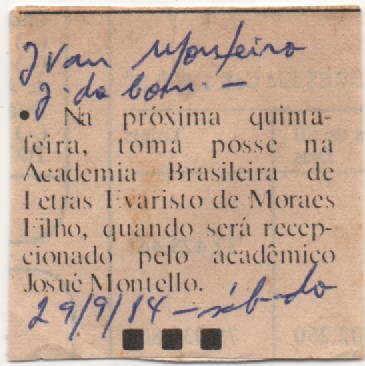 Ivan Monteiro
J. do Com. –
• Na próxima quinta-
feira, toma posse na
Academia Brasileira de
Letras Evaristo de Moraes
Filho, quando será recep-
cionado pelo acadêmico
Josué Montello.
29/9/84 – sábado